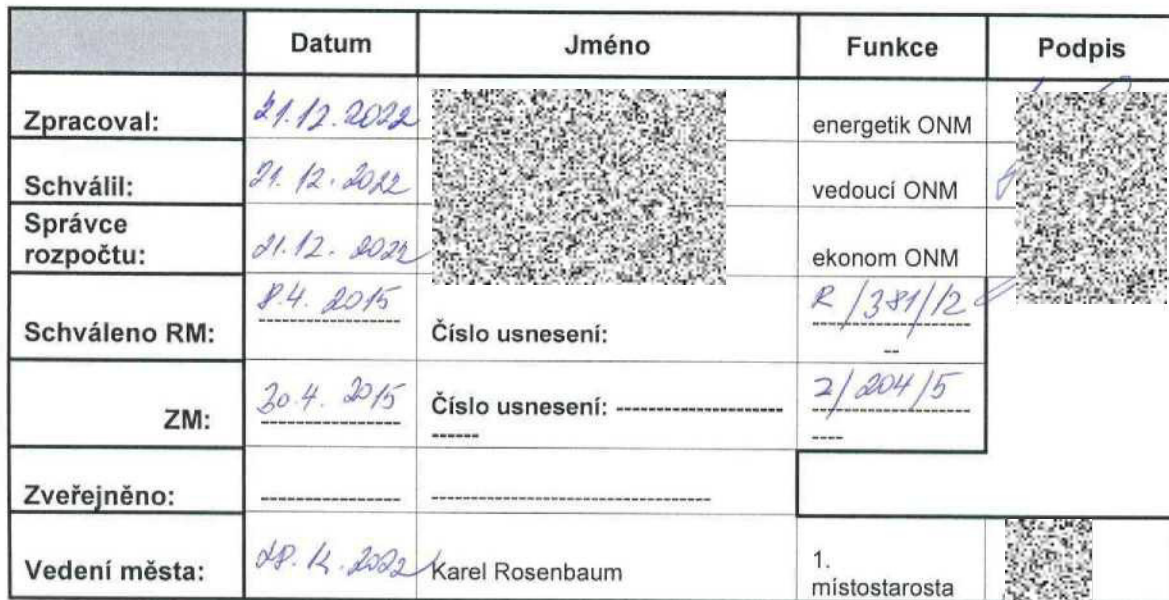 Datum Jméno Funkce Podpis
Zpracoval: 21.12.2022 energetik ONM
Schválil: 21.12.2022 vedoucí ONM
Správce
rozpočtu: 21.12.2022 ekonom ONM
Schváleno RM: 8.4. 2015 Číslo usnesení: R/381/12
ZM: 30.4. 2015 Číslo usnesení: --------------------- 2/204/5
Zveřejněno: ---------------- --------------------------------
Vedení města: 28.12.2022 Karel Rosenbaum 1.
místostarosta